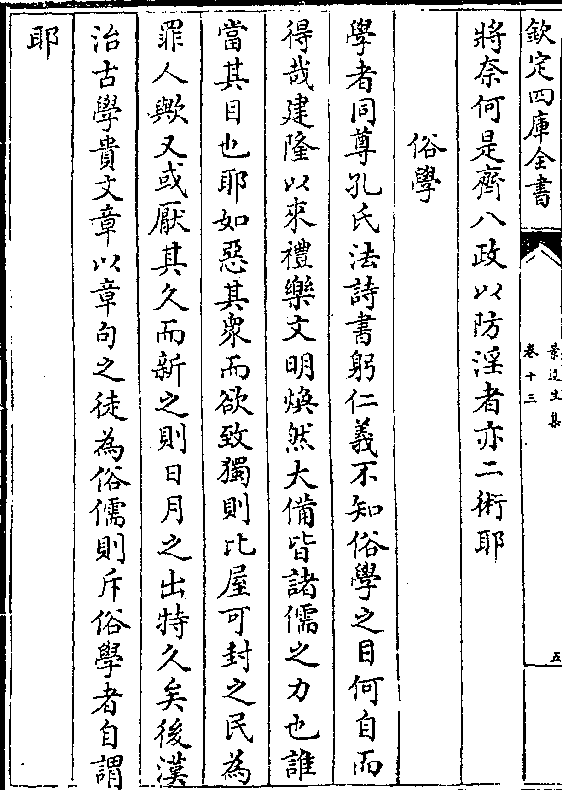 欽定四庫全書
卷十三
五
將奈何是齊八政以防淫者亦二術耶
俗學
學者同尊孔氏法詩書躬仁義不知俗學之目何自而
得哉建隆以來禮樂文明煥然大備皆諸儒之力也誰
當其目也耶如惡其衆而欲致獨則比屋可封之民為
罪人歟又或厭其久而新之則日月之出特久矣後漢
治古學貴文章以章句之徒為俗儒則斥俗學者自謂
耶